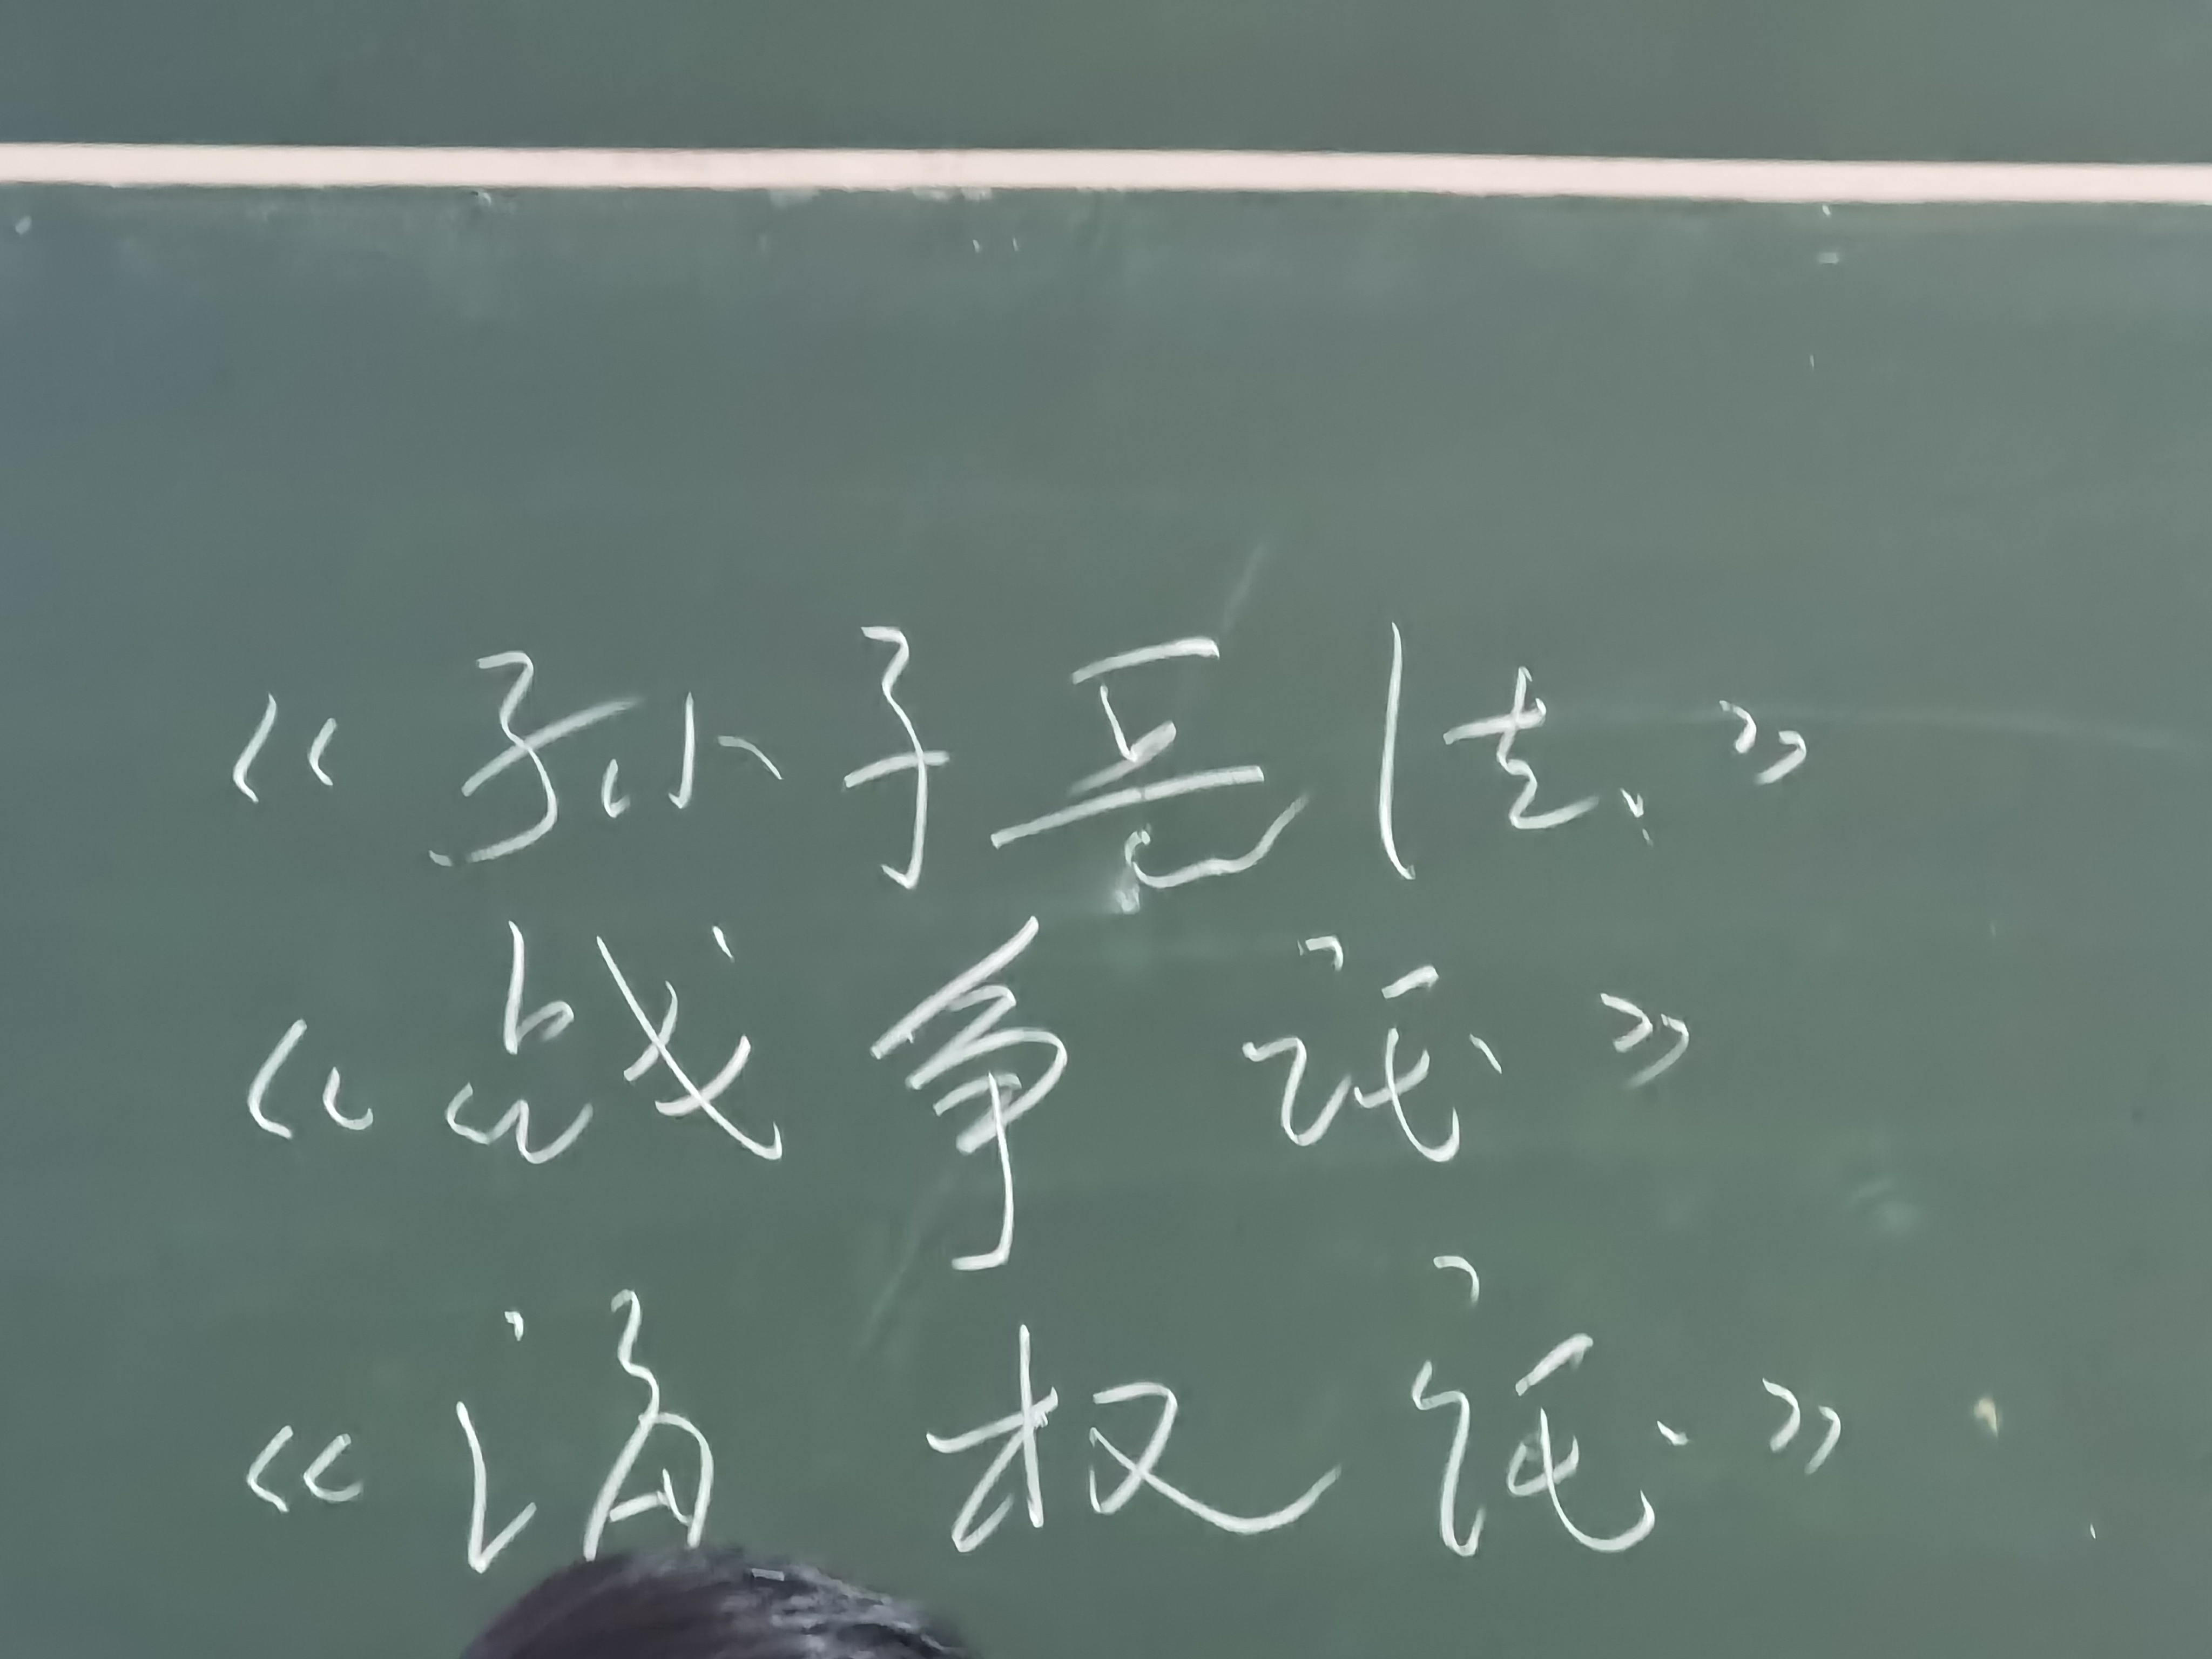 《孙子兵法》
《战争论》
《海权论》